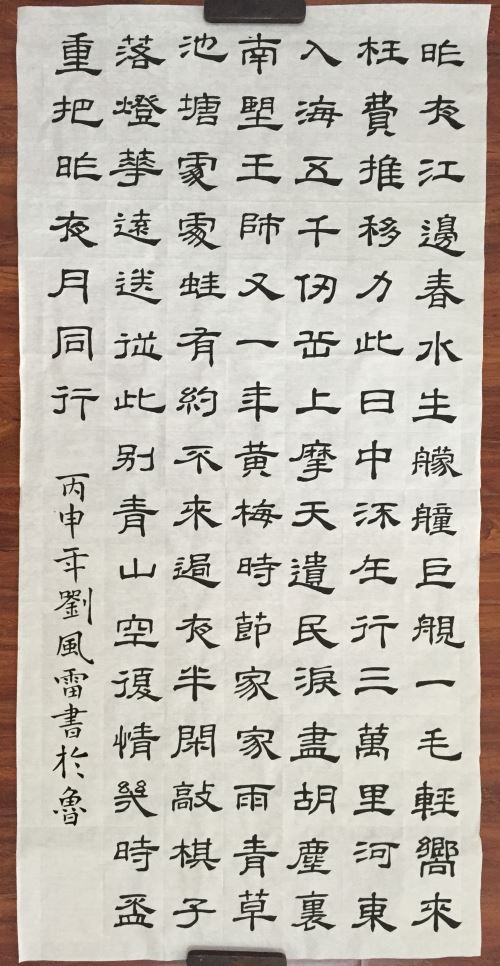 昨夜江邊春水生艨艟巨舰一毛輕嚮來
枉費推移力此日中流在行三萬里河東
入海五千仞岳上摩天遺民淚盡胡塵裏
南望王師又一年黃梅時節家家雨青草
池塘處處蛙有約不來過夜半閑敲棋子
落燈華遠送從此别青山空復情幾時盃
重把昨夜月同行 丙申年劉風雷書於魯